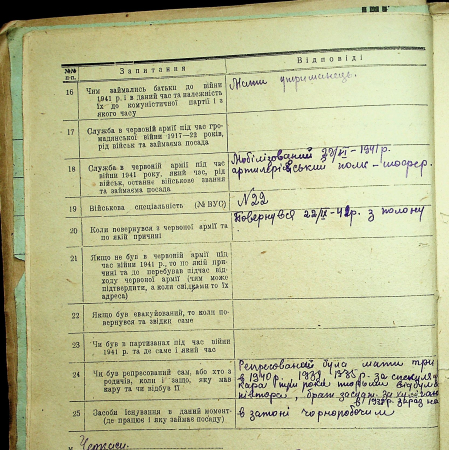 №№ п.п.
Запитання
Відповіді
16
Чим займались батьки до війни
1941 р. і в даний час та належність
їх до комуністичної партії і з
якого часу
Мати утриманець.
17
Служба в червоній армії під час гро-
мадянської війни 1917—22 років,
рід військ та займаєма посада
18
Служба в червоній армії під час
війни 1941 року, який час, рід
військ, останнє військове звання
та займаєма посада
Мобілізований 29/VI - 1941 р.
артилерійський полк - шофер.
19
Військова спеціяльність (№ ВУО)
№22
20
Коли повернувся з червоної армії та
по якій причині
Повернувся 22/IX - 42р. з полону
21
Якщо не був в червоній армії під
час війни 1941 р., то по якій при-
чині та де перебував підчас від-
ходу червоної армії (чим може
підтвердити, а коли свідками то їх
адреса)
22
Якщо був евакуйований, то коли по-
вернувся та звідки саме
23
Чи був в партизанах під час війни
1941 р. та де саме і який час
24
Чи був репресований сам, або хто з
родичів, коли і за що, яку мав
кару та чи відбув її
Репресований була мати три
в 1940р. 1939, 1935 р. за
кара три роки тюрми відбула
півтора, брат засудж. за
в 1938р. зараз на
25
Засоби існування в даний момент
(де працює і яку займає посаду)
в затоні чорноробочим
Черкаси